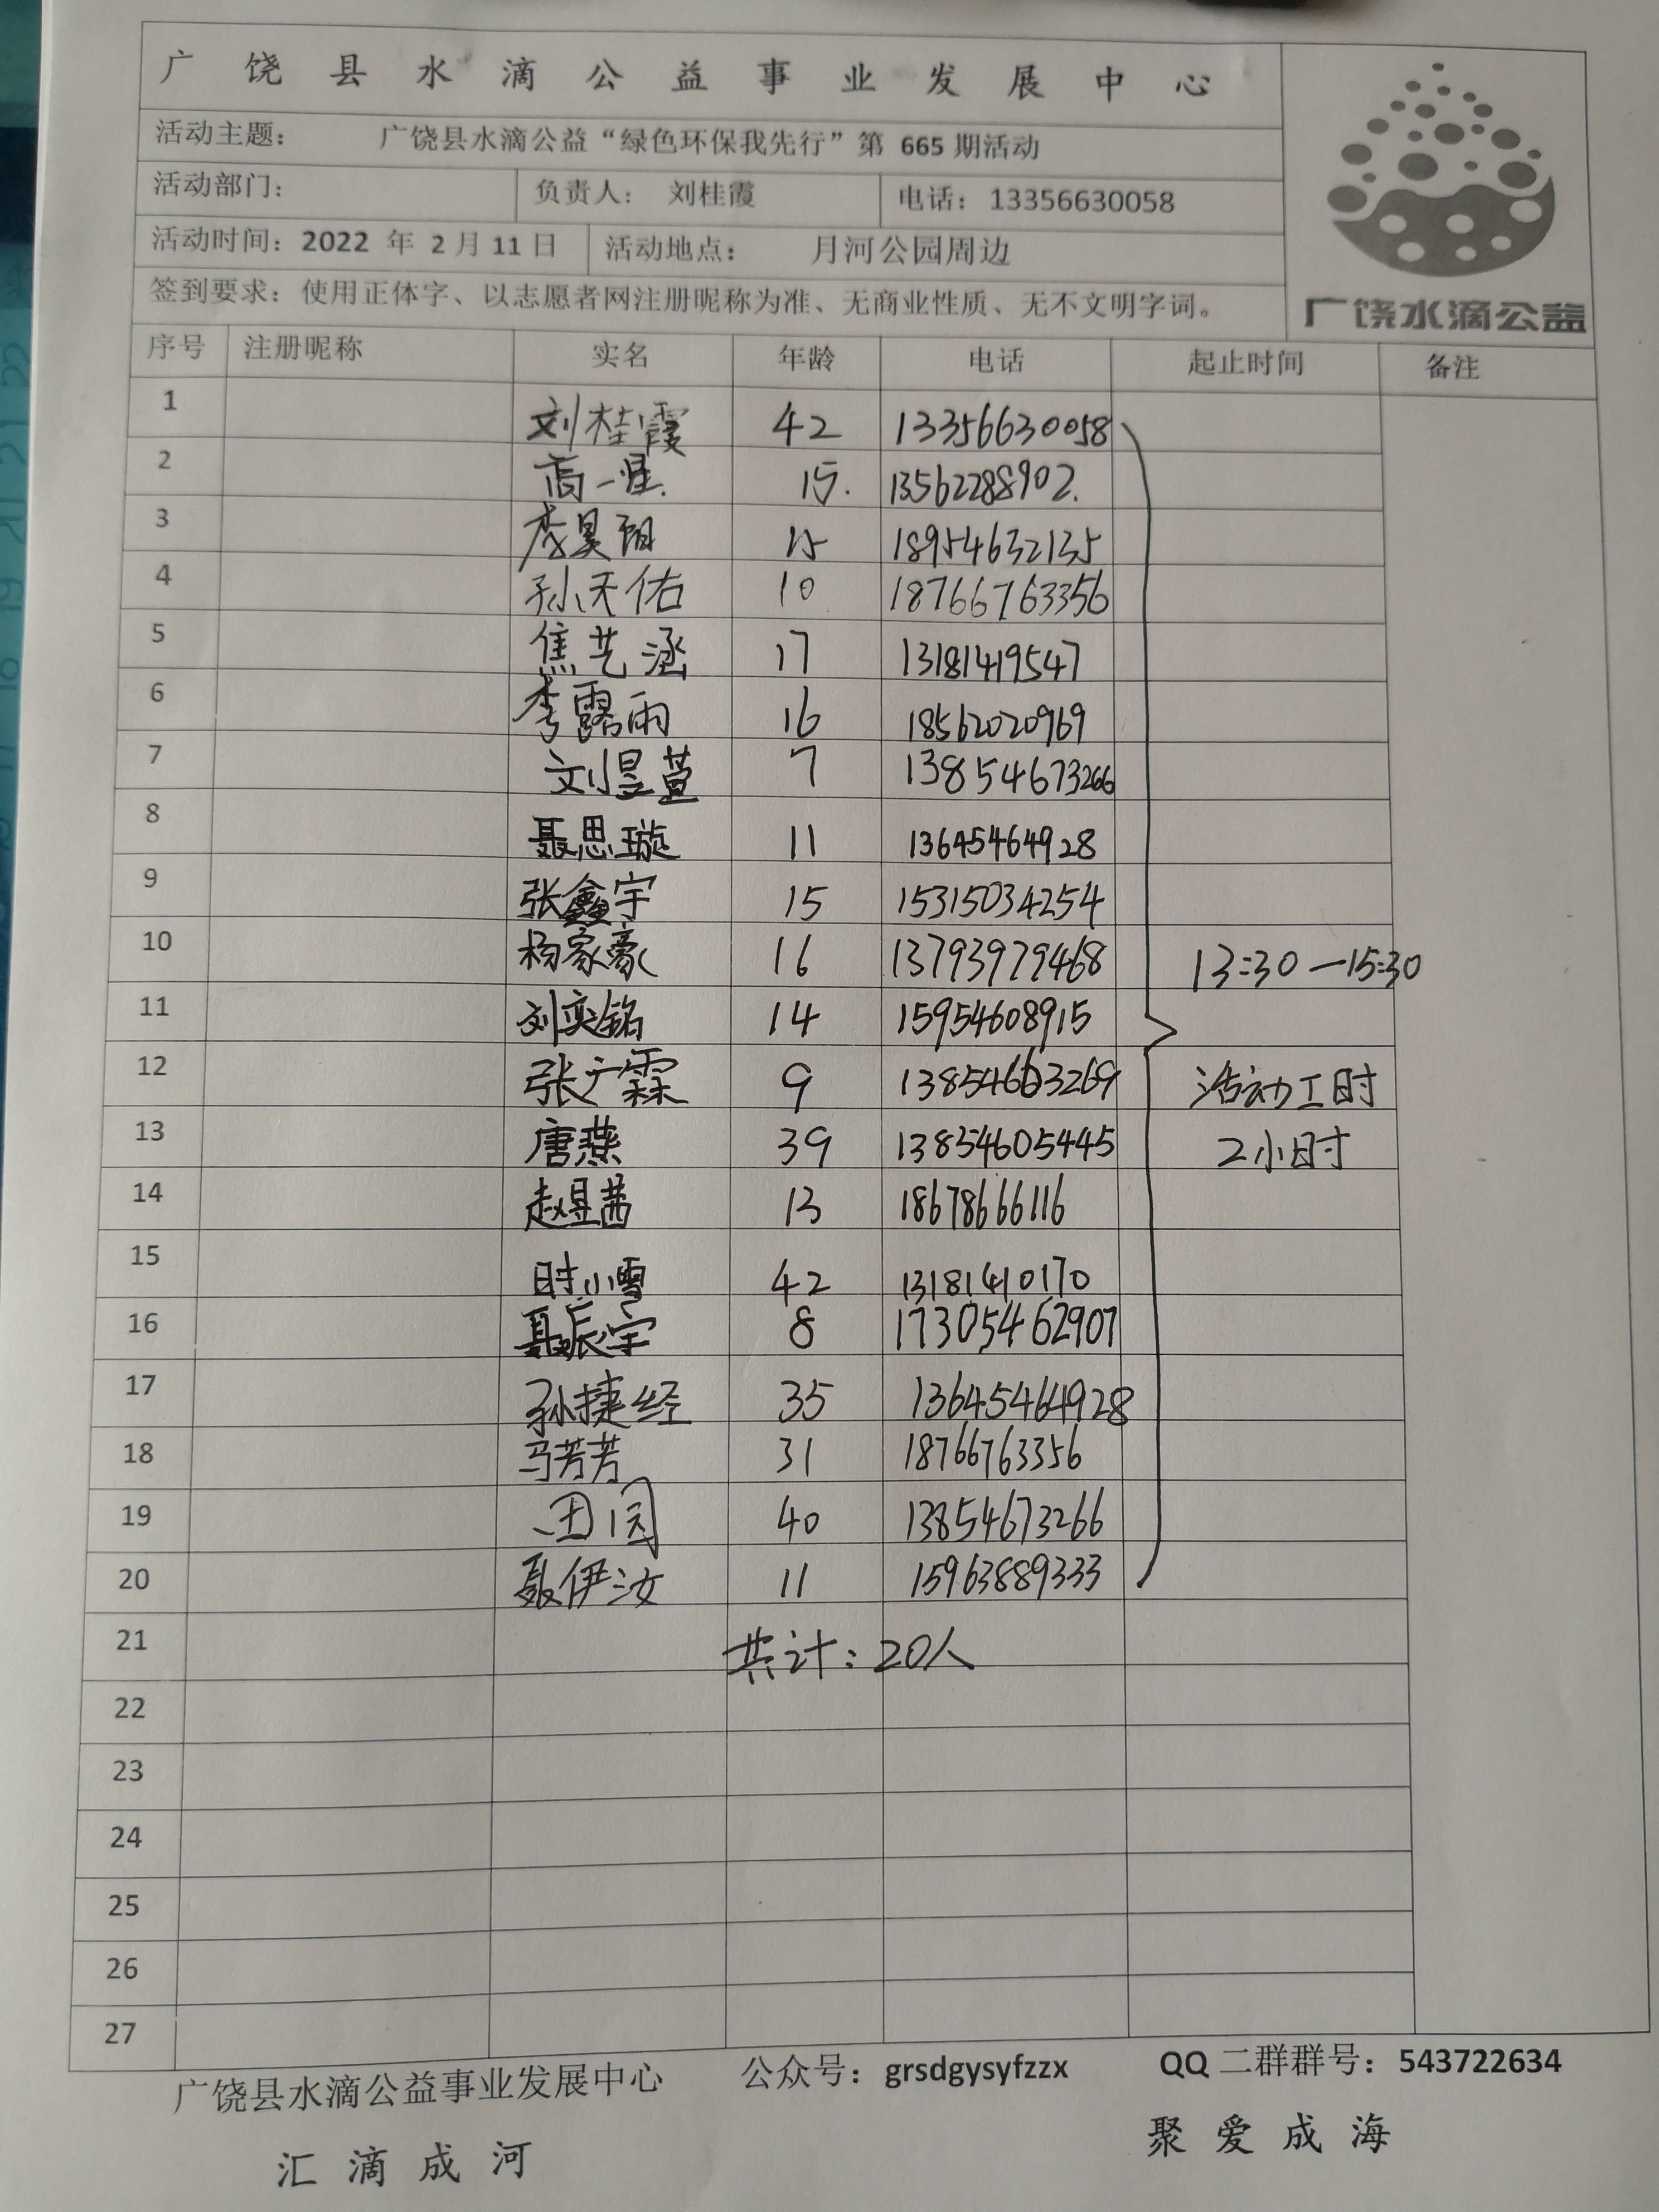 广饶县水滴公益事业发展中心
活动主题： 广饶县水滴公益“绿色环保我先行”第 665 期活动
活动部门： 负责人： 刘桂霞 电话：13356630058
活动时间：2022 年 2 月 11 日 活动地点： 月河公园周边
签到要求：使用正体字、以志愿者网注册昵称为准、无商业性质、无不文明字词。
广饶水滴公益
序号 注册昵称 实名 年龄 电话 起止时间 备注
1 刘桂霞 42 13356630058
2 高一星 15. 13562288902.
3 李昊阳 15 18954632135
4 孙天佑 10 18766763356
5 焦艺涵 17 13181419547
6 李露雨 16 18562020969
7 刘昱萱 7 13854673266
8 聂思璇 11 13645464928
9 张鑫宇 15 15315034254
10 杨家豪 16 13793979468 13:30—15:30
11 刘奕铭 14 15954608915
12 张广霖 9 13854663269 活动工时
13 唐燕 39 13854605445 2小时
14 赵昱茜 13 18678666116
15 时小雪 42 13181410170
16 聂振宇 8 17305462907
17 孙捷经 35 13645464928
18 马芳芳 31 18766763356
19 田园 40 13854673266
20 聂伊汝 11 15963889333
21 共计：20人
22
23
24
25
26
27
广饶县水滴公益事业发展中心 公众号：grsdgysyfzzx QQ 二群群号：543722634
汇滴成河 聚爱成海